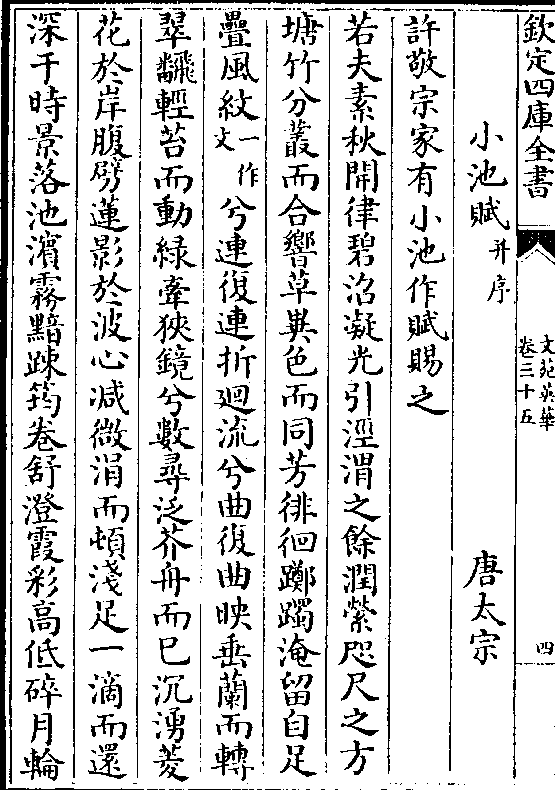 欽定四庫全書
文苑英華
卷三十五
四
小池賦并序
唐太宗
許敬宗家有小池作賦賜之
若夫素秋開律碧沼凝光引涇渭之餘潤縈咫尺之方
塘竹分叢而合響草異色而同芳徘徊躑躅淹留自足
疊風紋一作文兮連復連折迴流兮曲復曲映垂蘭而轉
翠飜輕苔而動緑牽狹鏡兮數尋泛芥舟而已沉湧菱
花於岸腹劈蓮影於波心减微涓而頓淺足一滴而還
深于時景落池濱霧黯踈筠卷舒澄霞彩高低碎月輪